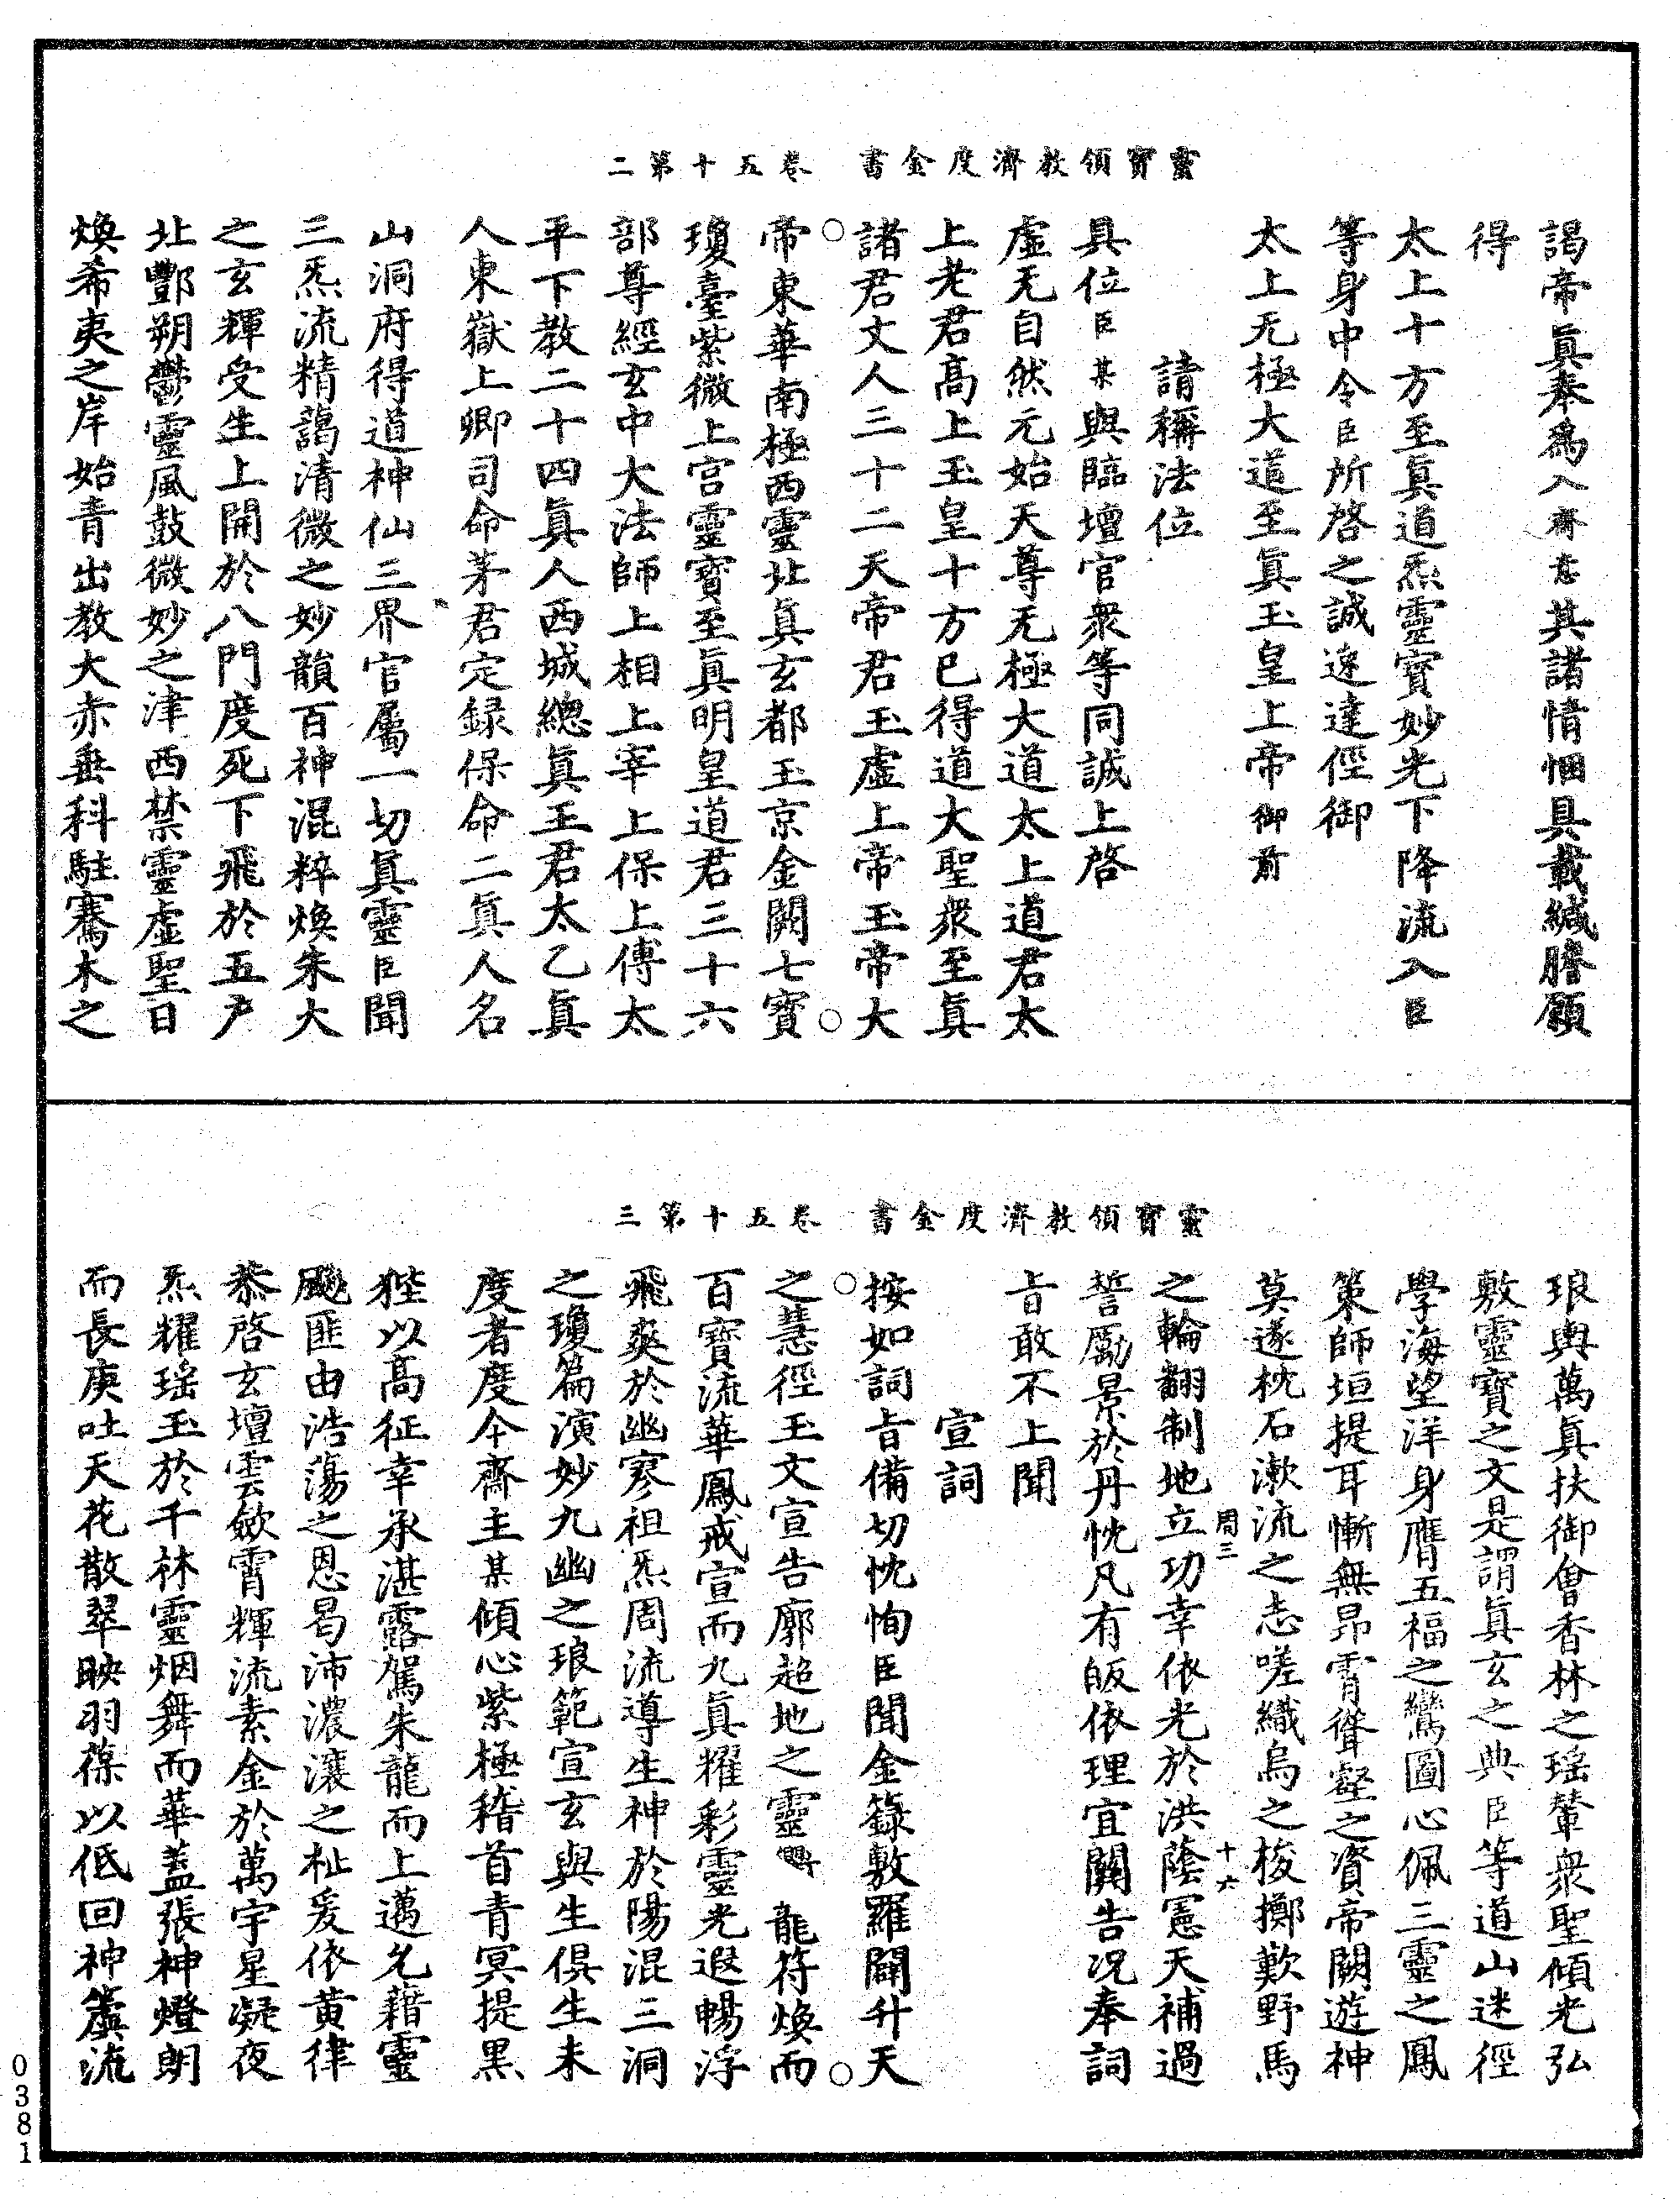 靈寶領教濟度金書　卷五十第二
謁帝真奉爲入齋意其諸情悃具載緘謄願
得
太上十方至真道炁靈寶妙光下降流入臣
等身中令臣所啓之誠速達徑御
太上无極大道至真玉皇上帝御前
請稱法位
具位臣某與臨壇官衆等同誠上啓
虛无自然元始天尊无極大道太上道君太
上老君高上玉皇十方已得道大聖衆至真
諸君丈人三十二天帝君玉虛上帝玉帝大
帝東華南極西靈北真玄都玉京金闕七寶
瓊臺紫微上宮靈寶至真明皇道君三十六
部尊經玄中大法師上相上宰上保上傅太
平下教二十四真人西城總真王君太乙真
人東嶽上卿司命茅君定録保命二真人名
山洞府得道神仙三界官屬一切真靈臣聞
三炁流精藹清微之妙韻百神混粹煥朱大
之玄輝受生上開於八門度死下飛於五户
北酆朔鬱靈風鼓微妙之津西禁靈虛聖日
煥希夷之岸始青出教大赤垂科駐騫木之
靈寶領教濟度金書　卷五十第三
琅輿萬真扶御會香林之瑶輦衆聖傾光弘
敷靈寶之文是謂真玄之典臣等道山迷徑
學海望洋身膺五福之鸞圖心佩三靈之鳳
策師垣提耳慚無昂霄聳壑之資帝闕遊神
莫遂枕石漱流之志嗟織烏之梭擲歎野馬
周三　十六
之輪翻制地立功幸依光於洪蔭憲天補過
誓勵景於丹忱凡有皈依理宜關告况奉詞
旨敢不上聞
宣詞
按如詞旨備切忱恂臣聞金籙敷羅闢升天
之慧徑玉文宣告廓超地之靈　龍符煥而
百寶流華鳳戒宣而九真耀彩靈光遐暢浮
飛爽於幽寥祖炁周流導生神於陽混三洞
之瓊篇演妙九幽之琅範宣玄與生俱生未
度者度今齋主某傾心紫極稽首青冥提黑
狴以高征幸承湛露駕朱龍而上邁允藉靈
飈匪由浩蕩之恩曷沛濃瀼之祉爰依黄律
恭啓玄壇雲歛霄輝流素金於萬宇星凝夜
炁耀瑶玉於千林靈烟舞而華蓋張神燈朗
而長庚吐天花散翠映羽葆以低回神簴流
0381